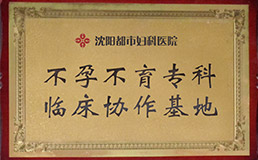 沈阳都市妇科医院
不孕不育专科
临床协作基地